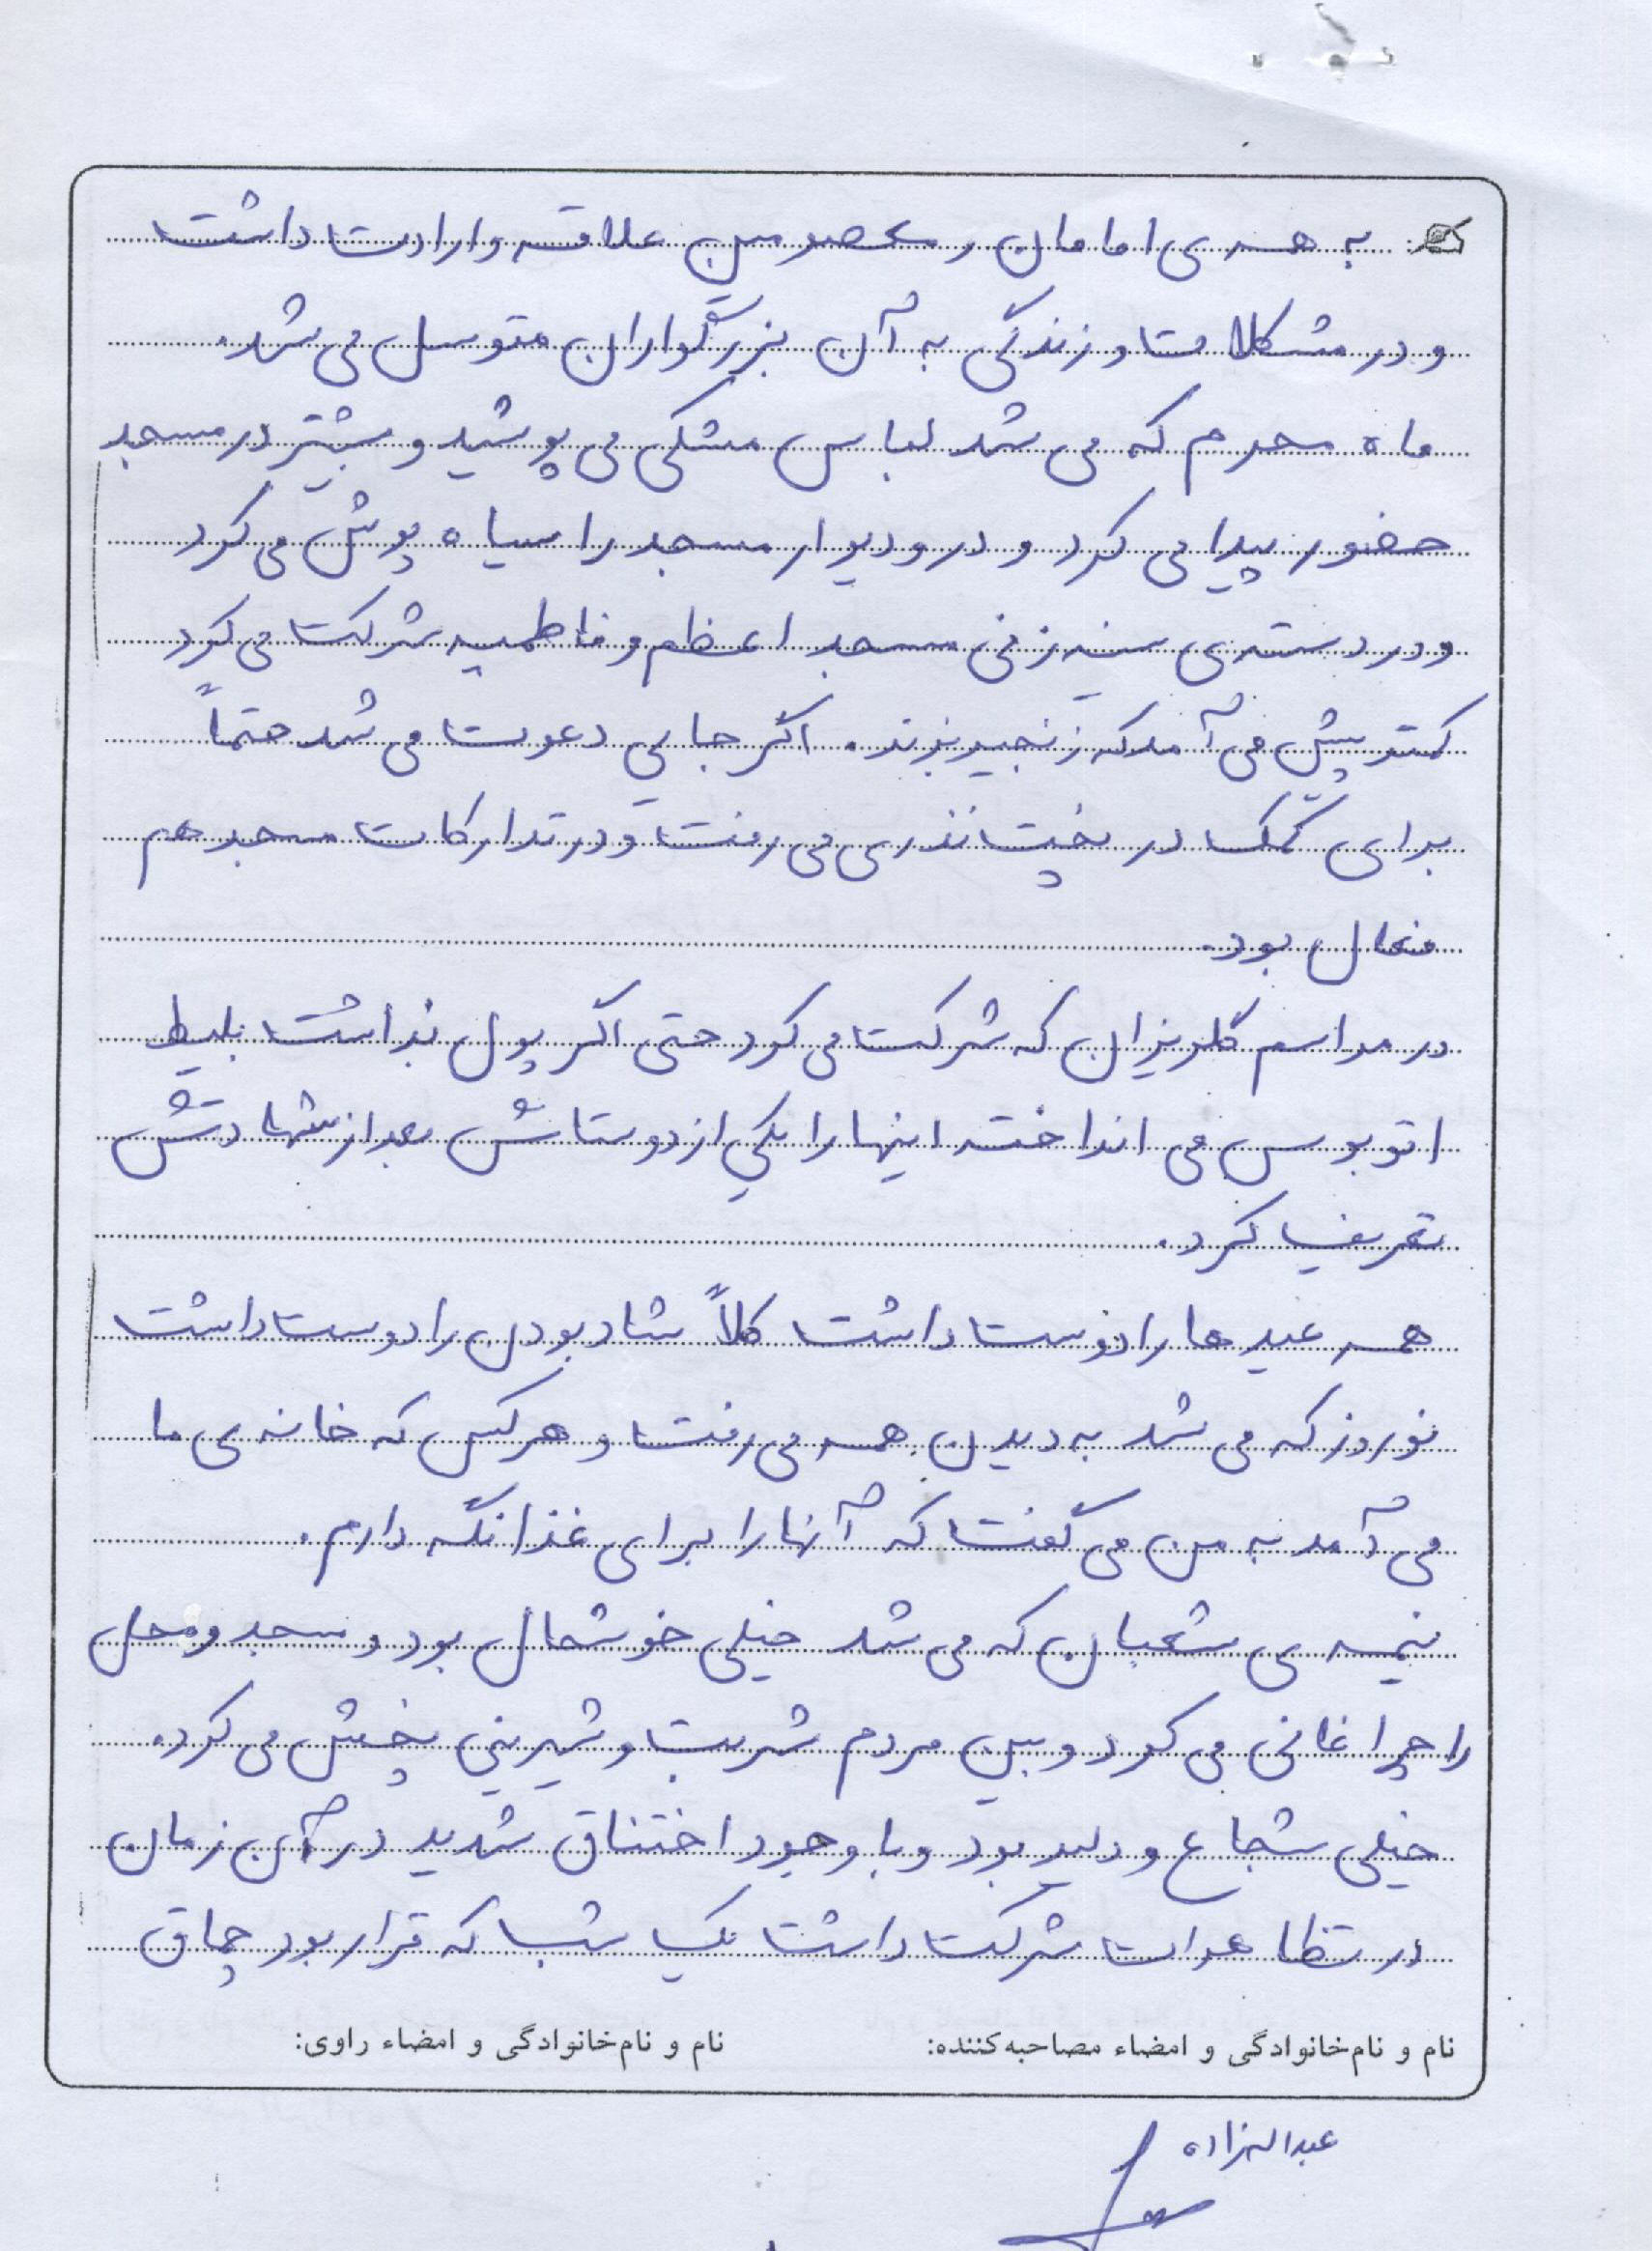 به همه‌ی امامان و معصومین علاقه و ارادت داشت
و در مشکلات و زندگی به آن بزرگواران متوسل می شد.
ماه محرم که می شد لباس مشکی می پوشید و بیشتر در مسجد
حضور پیدا می کرد و در و دیوار مسجد را سیاه پوش می کرد
و در دسته‌ی سینه زنی مسجد اعظم و فاطمیه شرکت می کرد
کمتر پیش می آمد که زنجیر بزند. اگر جایی دعوت می شد حتماً
برای کمک در پخت نذری می رفت و در تدارکات مسجد هم
فعال بود.
در مراسم گلریزان که شرکت می کرد حتی اگر پول نداشت بلیط
اتوبوس می انداخت اینها را یکی از دوستانش بعد از شهادتش
تعریف کرد.
همه عیدها را دوست داشت کلاً شاد بودن را دوست داشت
نوروز که می شد به دیدن همه می رفت و هر کس که خانه ی ما
می آمد به من می گفت که آنها را برای غذا نگه دارم.
نیمه ی شعبان که می شد خیلی خوشحال بود و مسجد و محل
را چراغانی می کرد و بین مردم شربت و شیرینی پخش می کرد.
خیلی شجاع و دلیر بود و با وجود اختناق شدید در آن زمان
در تظاهرات شرکت داشت یک شب که قرار بود چماق
نام و نام‌خانوادگی و امضاء مصاحبه‌کننده: نام و نام‌خانوادگی و امضاء راوی: